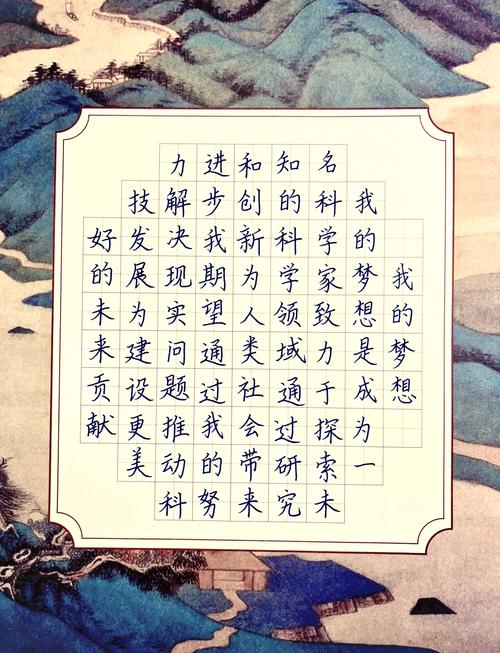 我的梦想
我的梦想是成为一
名科学家致力于探索未
知的科学领域通过研究
和创新为人类社会带来
进步我期望通过我的努
力解决现实问题推动科
技发展为建设更美
好的未来贡献